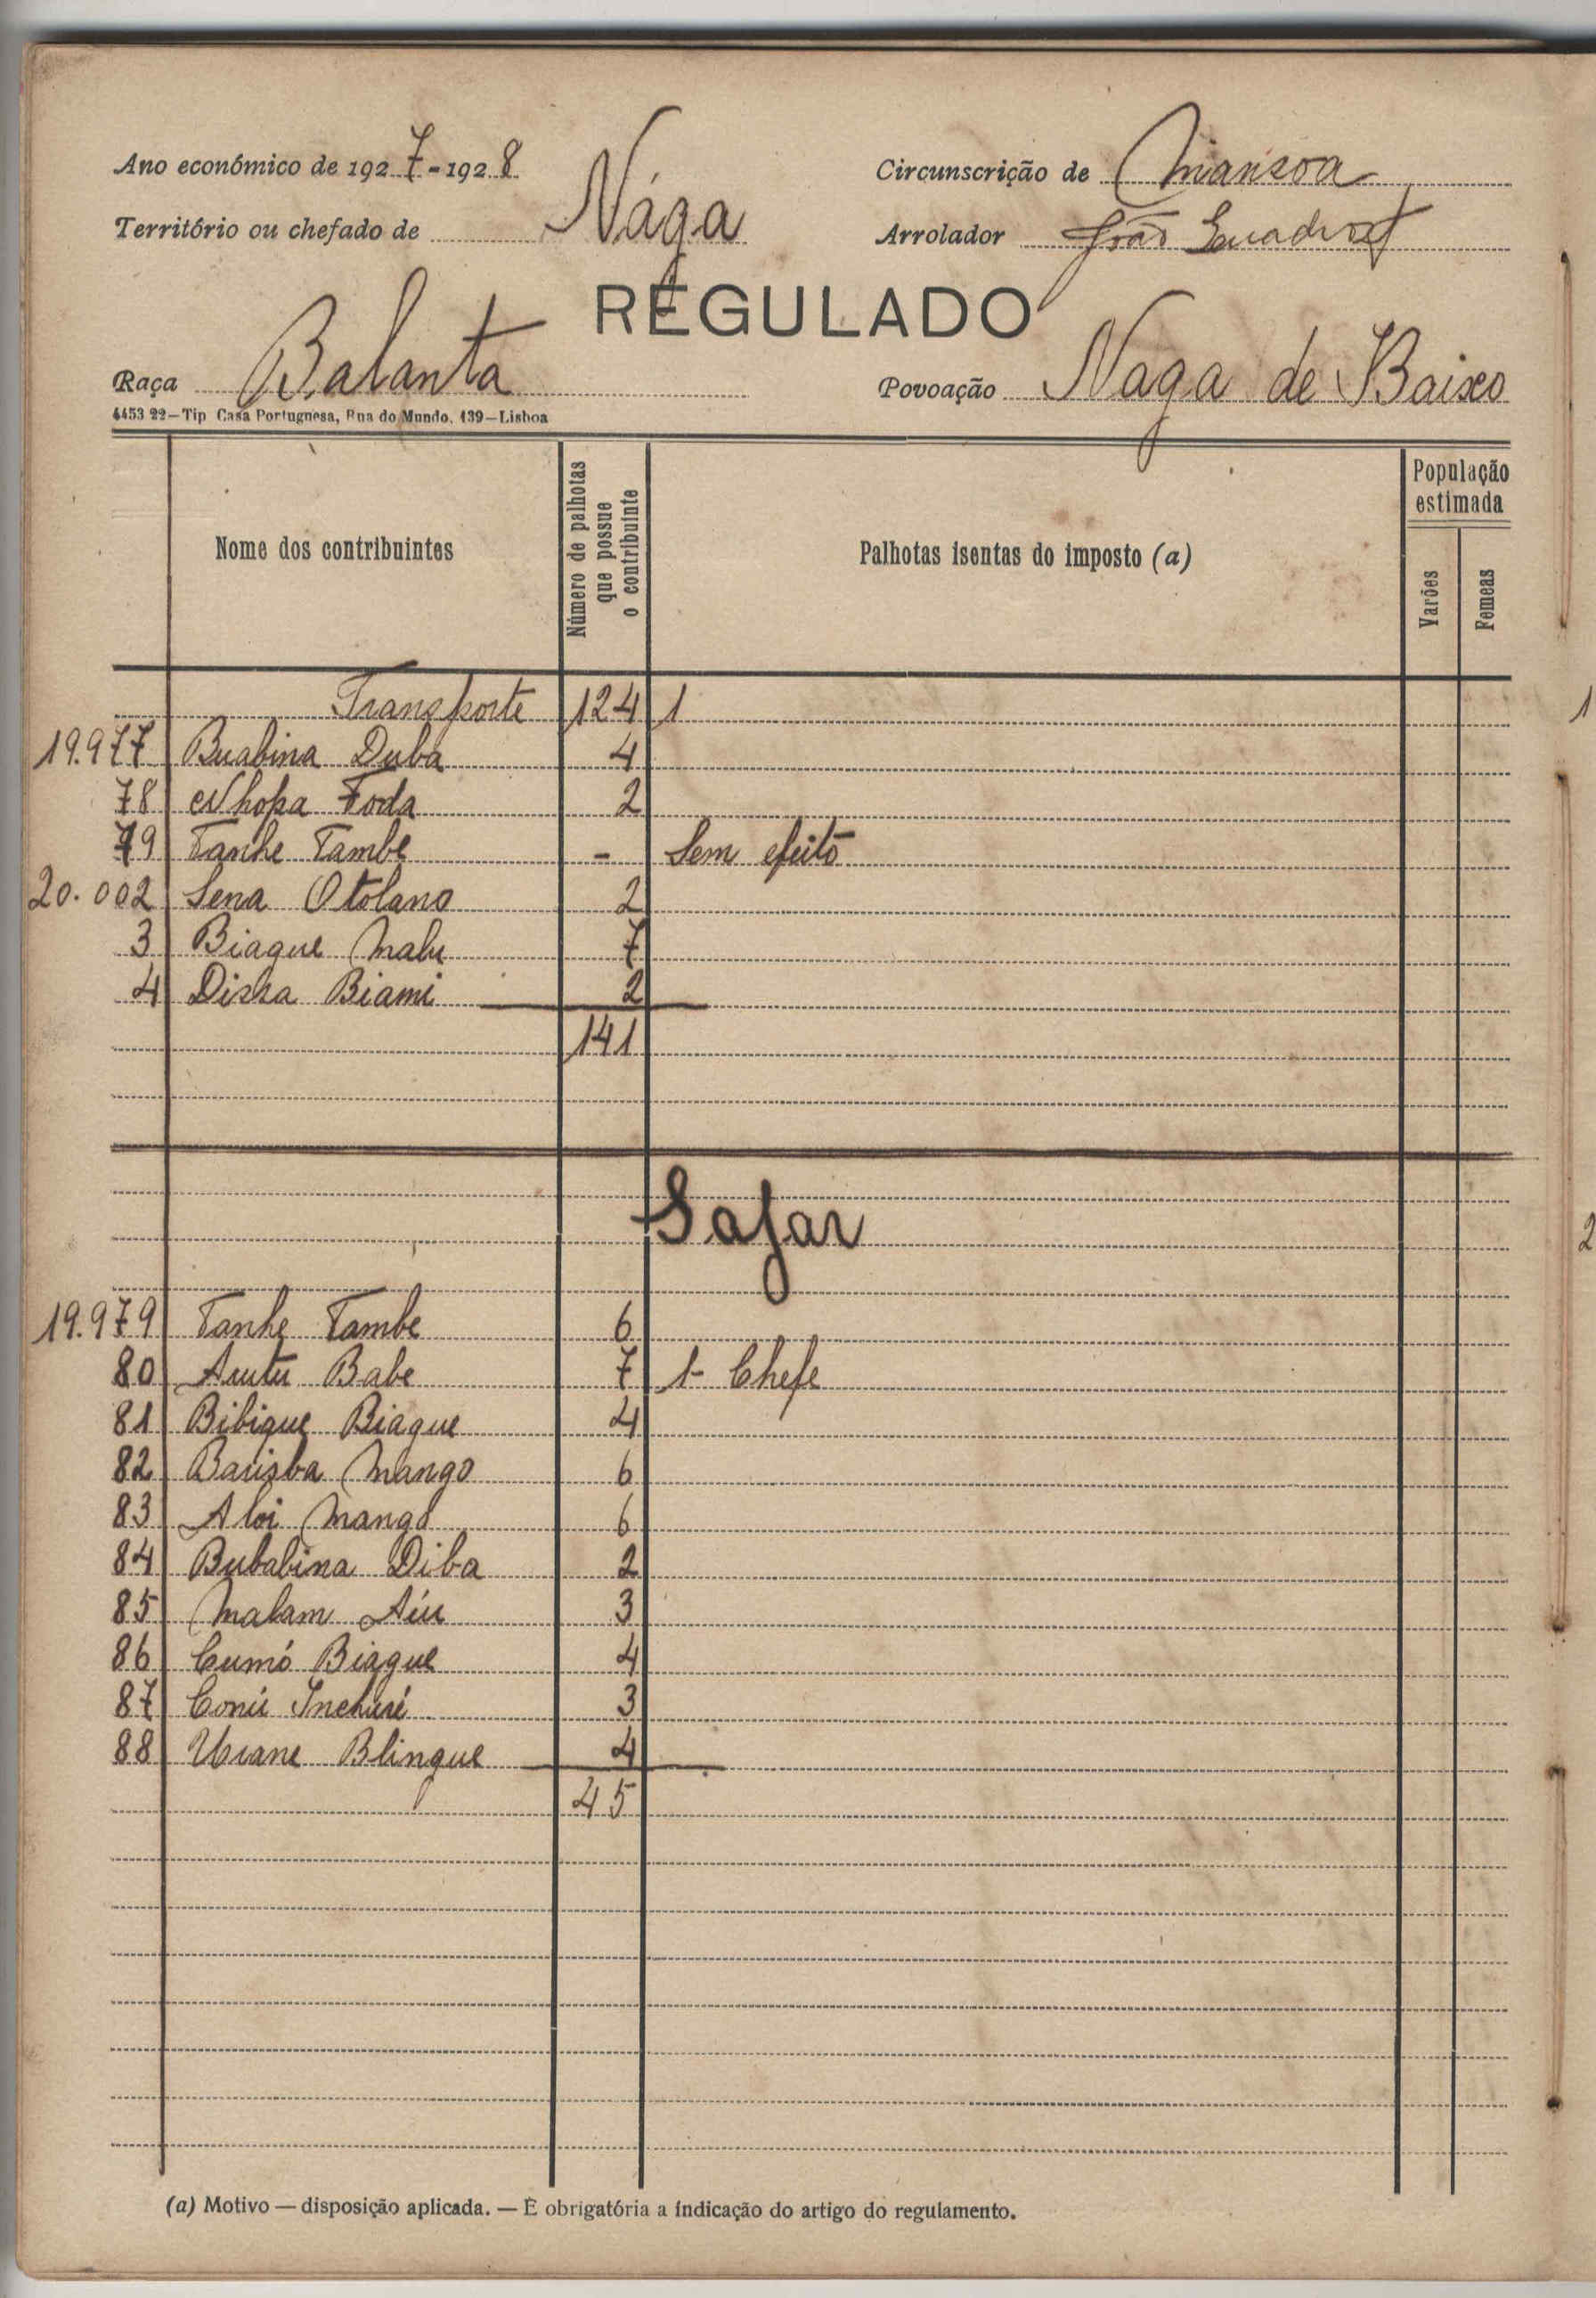 Ano económico de 1927-1928
Circunscrição de Mansoa
Território ou chefado de Nága
Arrolador João
REGULADO
Raça Balanta
Povoação Naga de Baixo
4453 22—Tip Casa Portuguesa, Rua do Mundo, 139—Lisboa
Nome dos contribuintes
Número de palhotas que possue o contribuinte
Palhotas isentas do imposto (a)
População estimada
Varões
Femeas
Transporte 124 1
19.977 Buabina Duba 4
78 Nhopa Foda 2
79 Tanhe Tambe - Sem efeito
20.002 Sena Otolano 2
3 Biague Malu 7
4 Dissa Biami 2
141
Safar
19.979 Tanhe Tambe 6
80 Babe 7 1- Chefe
81 Bibique Biague 4
82 Mango 6
83 Aloi Mango 6
84 Bubabina Diba 2
85 Malam 3
86 Cumó Biague 4
87 3
88 Blingue 4
45
(a) Motivo — disposição aplicada. — É obrigatória a indicação do artigo do regulamento.
1
2